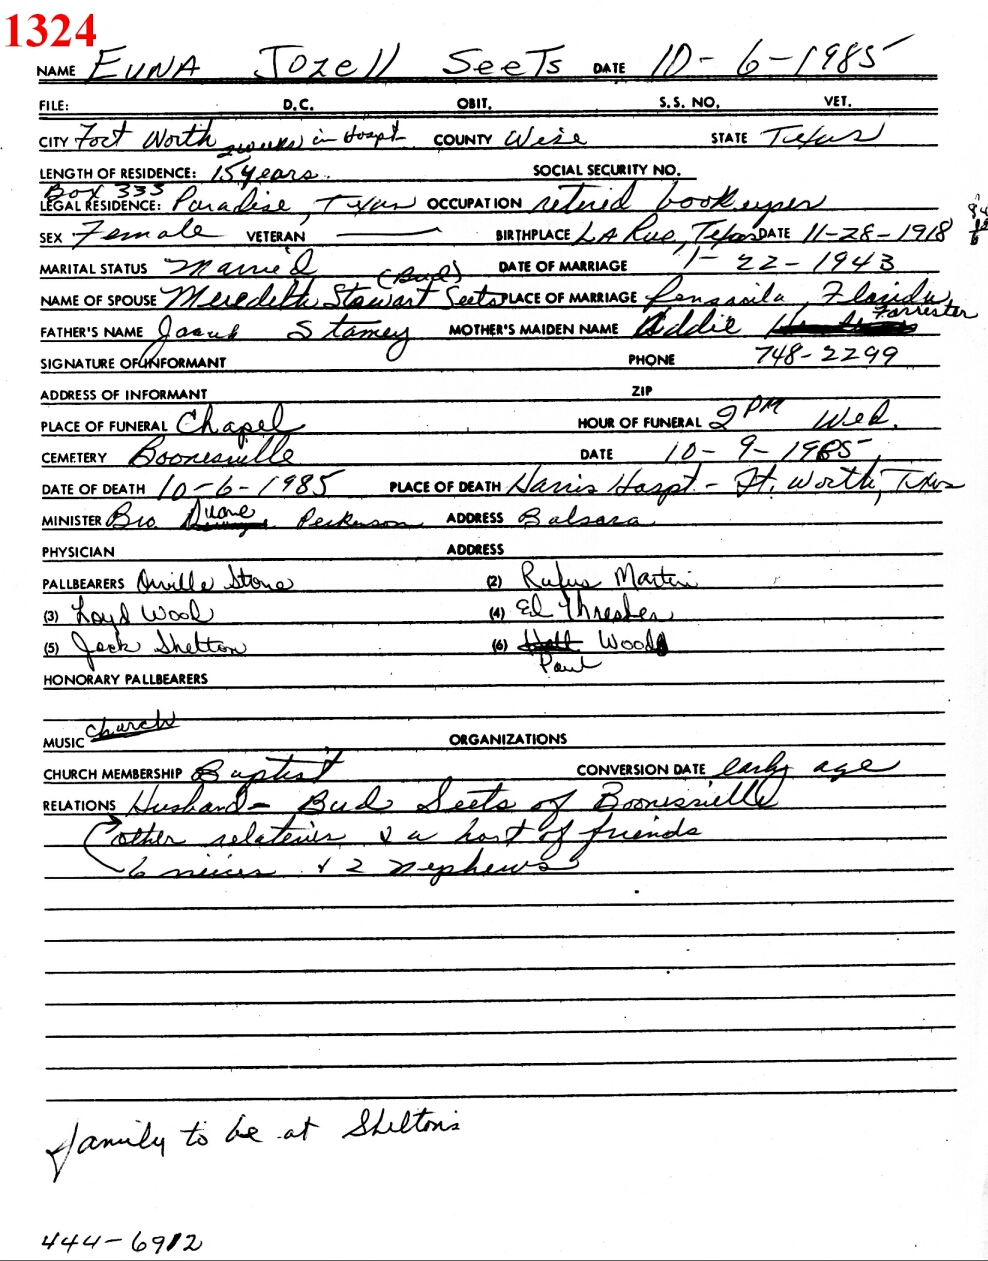 1324
NAME EUNA Jozell SeeTs DATE 10-6-1985
FILE: D.C. OBIT. S.S. NO. VET.
CITY Fort Worth 2 weeks in Hospt COUNTY Wise STATE Texas
LENGTH OF RESIDENCE: 15 years SOCIAL SECURITY NO.
Box 333
LEGAL RESIDENCE: Paradise, Texas OCCUPATION retired bookkeeper
SEX Female VETERAN BIRTHPLACE LA Rue, Texas DATE 11-28-1918
MARITAL STATUS Married DATE OF MARRIAGE 1-22-1943
(Bud)
NAME OF SPOUSE Meredith Stewart Seets PLACE OF MARRIAGE Pensacola, Florida
FATHER'S NAME Stamey MOTHER'S MAIDEN NAME Addie Forrester
SIGNATURE OF INFORMANT PHONE 748-2299
ADDRESS OF INFORMANT ZIP
PLACE OF FUNERAL Chapel HOUR OF FUNERAL 2 PM Wed.
CEMETERY Boonesville DATE 10-9-1985
DATE OF DEATH 10-6-1985 PLACE OF DEATH Harris Hospt - Ft. Worth, Texas
MINISTER Bro. Duane Perkinson ADDRESS Balsora
PHYSICIAN ADDRESS
PALLBEARERS Orville Stone (2) Rufus Martin
(3) Loyd Wood (4) Ed Thresher
(5) Jack Shelton (6) Wood
Paul
HONORARY PALLBEARERS
MUSIC church ORGANIZATIONS
CHURCH MEMBERSHIP Baptist CONVERSION DATE early age
RELATIONS Husband - Bud Seets of Boonesville
other relatives & a host of friends
6 nieces + 2 nephews
family to be at Sheltons
444-6912